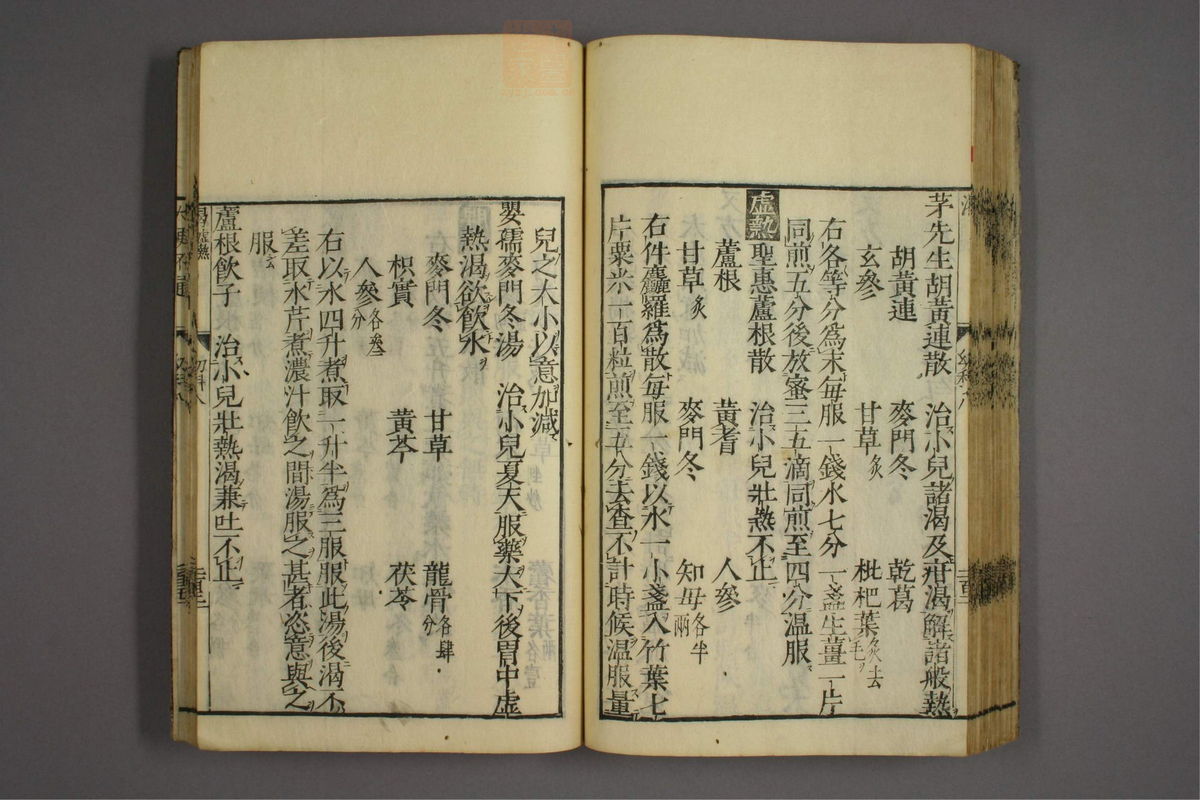 茅先生胡黃連散　治小兒諸渴及疳渴解諸般熱
胡黃連　麥門冬　乾葛
玄參　甘草炙　枇杷葉炙去毛
右各等分爲末每服一錢水七分一盞生薑一片
同煎五分後放蜜三五滴同煎至四分溫服
虛熱　聖惠蘆根散　治小兒壯熱不止
蘆根　黃耆　人參
甘草炙　麥門冬　知母各半兩
右件麤羅爲散每服一錢以水一小盞入竹葉七
片粟米一百粒煎至五分去查不計時候溫服量
兒之大小以意加減
嬰孺麥門冬湯　治小兒夏天服藥大下後胃中虛
熱渴欲飲水
麥門冬　甘草　龍骨各肆分
枳實　黃芩　茯苓
人參各叁分
右以水四升煮取一升半爲三服服此湯後渴不
差取水芹煮濃汁飲之間湯服之甚者恣意與之
服云
蘆根飲子　治小兒壯熱渴兼吐不止